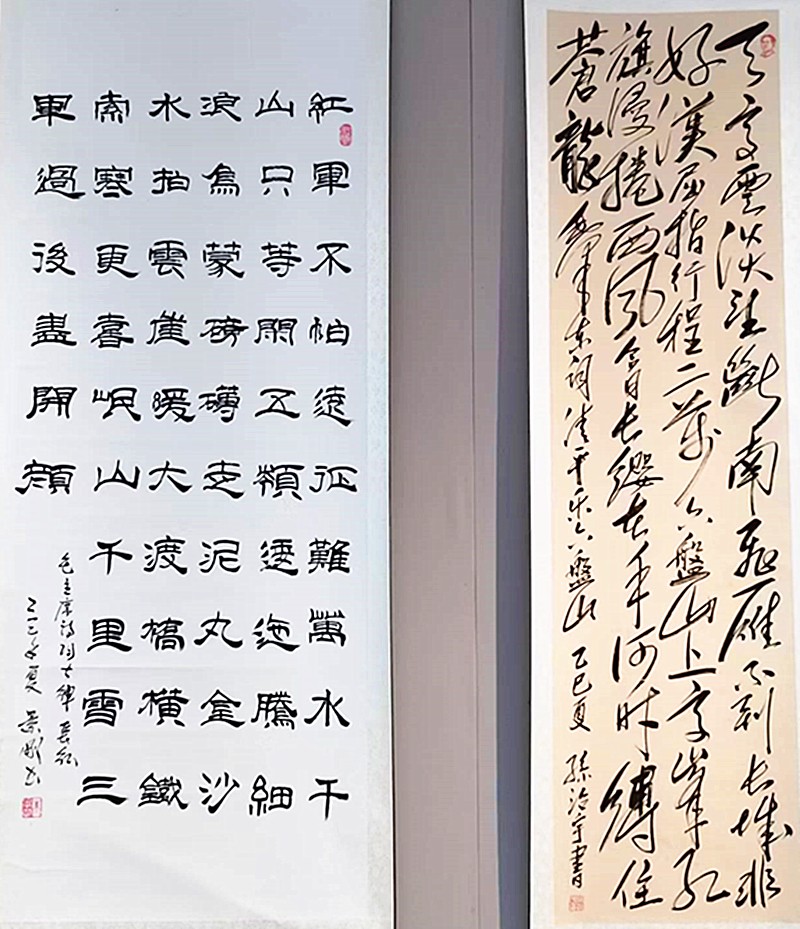 紅軍不怕遠征難萬水千
山只等閑五嶺逶迤騰細
浪烏蒙磅礴走泥丸金沙
水拍雲崖暖大渡橋橫鐵
索寒更喜岷山千里雪三
軍過後盡開顏
毛主席詩詞七律長征
夏
天高雲淡望斷南飛雁不到長城非
好漢屈指行程二萬六盤山上高峰紅
旗漫捲西風今日長纓在手何時縛住
蒼龍 毛澤東詞清平樂六盤山 乙巳夏 孫治宇書